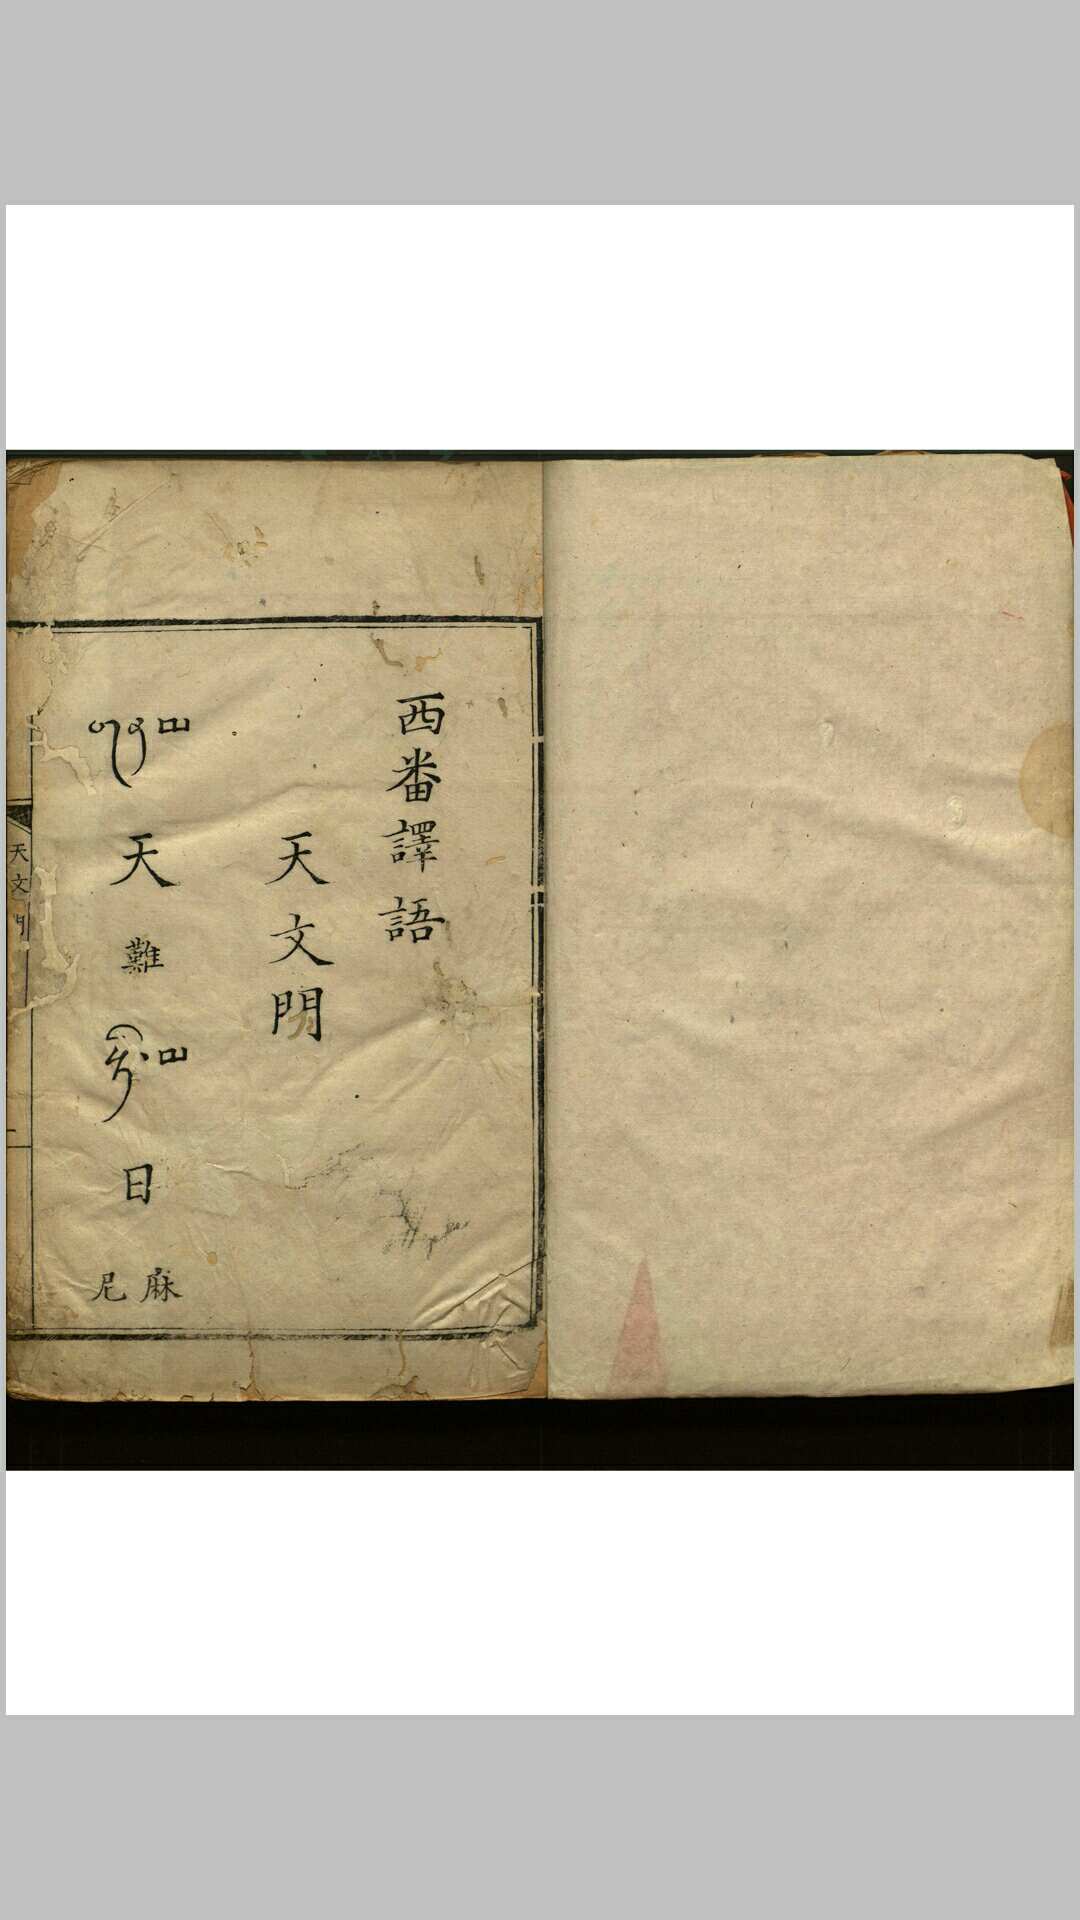 西番譯語
天文門
天
難
日
麻尼
天文門